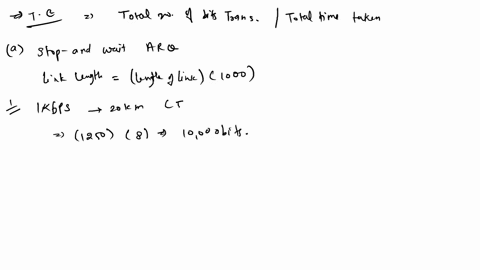 ⇒ T.E ⇒ Total no. of bits Trans. / Total time taken
(a) Stop-and wait ARQ
Link length = (length of link) (1000)
1 1Kbps → 20km CT
⇒ (1250) (8) ⇒ 10,000 bits.